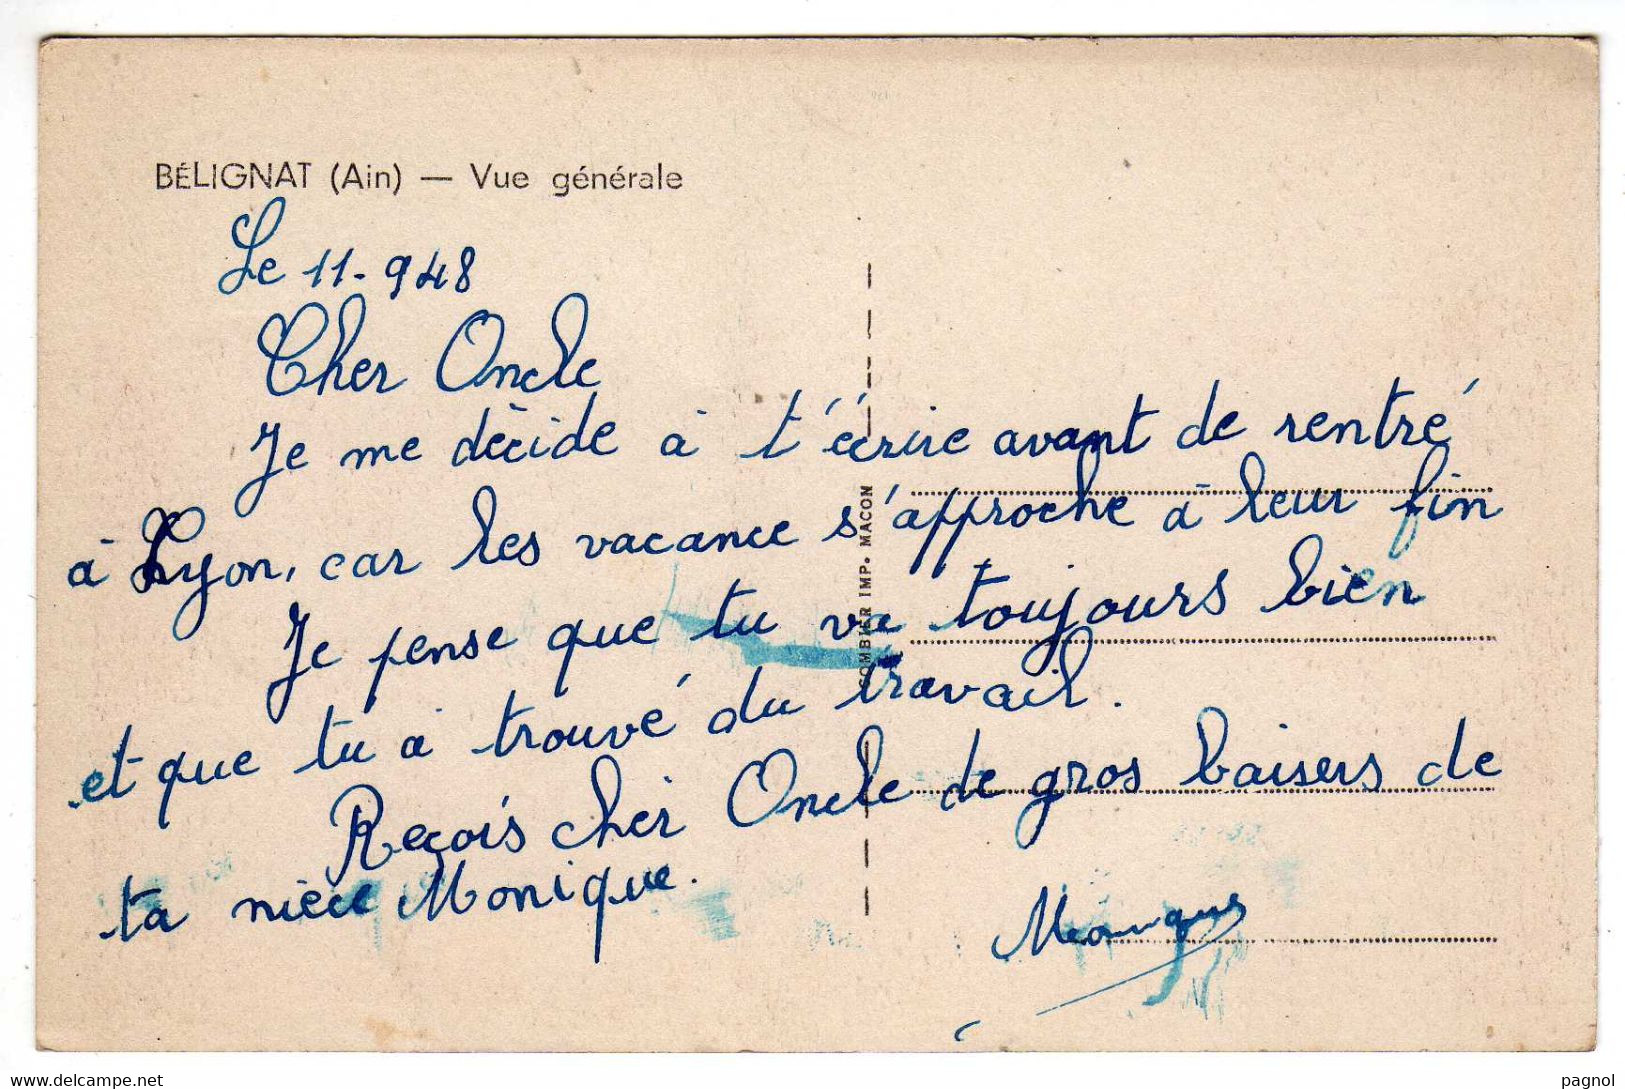 BÉLIGNAT (Ain) — Vue générale
Le 11-948
Cher Oncle
Je me décide à t'écrire avant de rentré
à Lyon, car les vacance s'approche à leur fin
Je pense que tu va toujours bien
et que tu a trouvé du travail.
Reçois cher Oncle de gros baisers de
ta nièce Monique.
Monique
COMBIER IMP. MACON
www.delcampe.net
pagnol